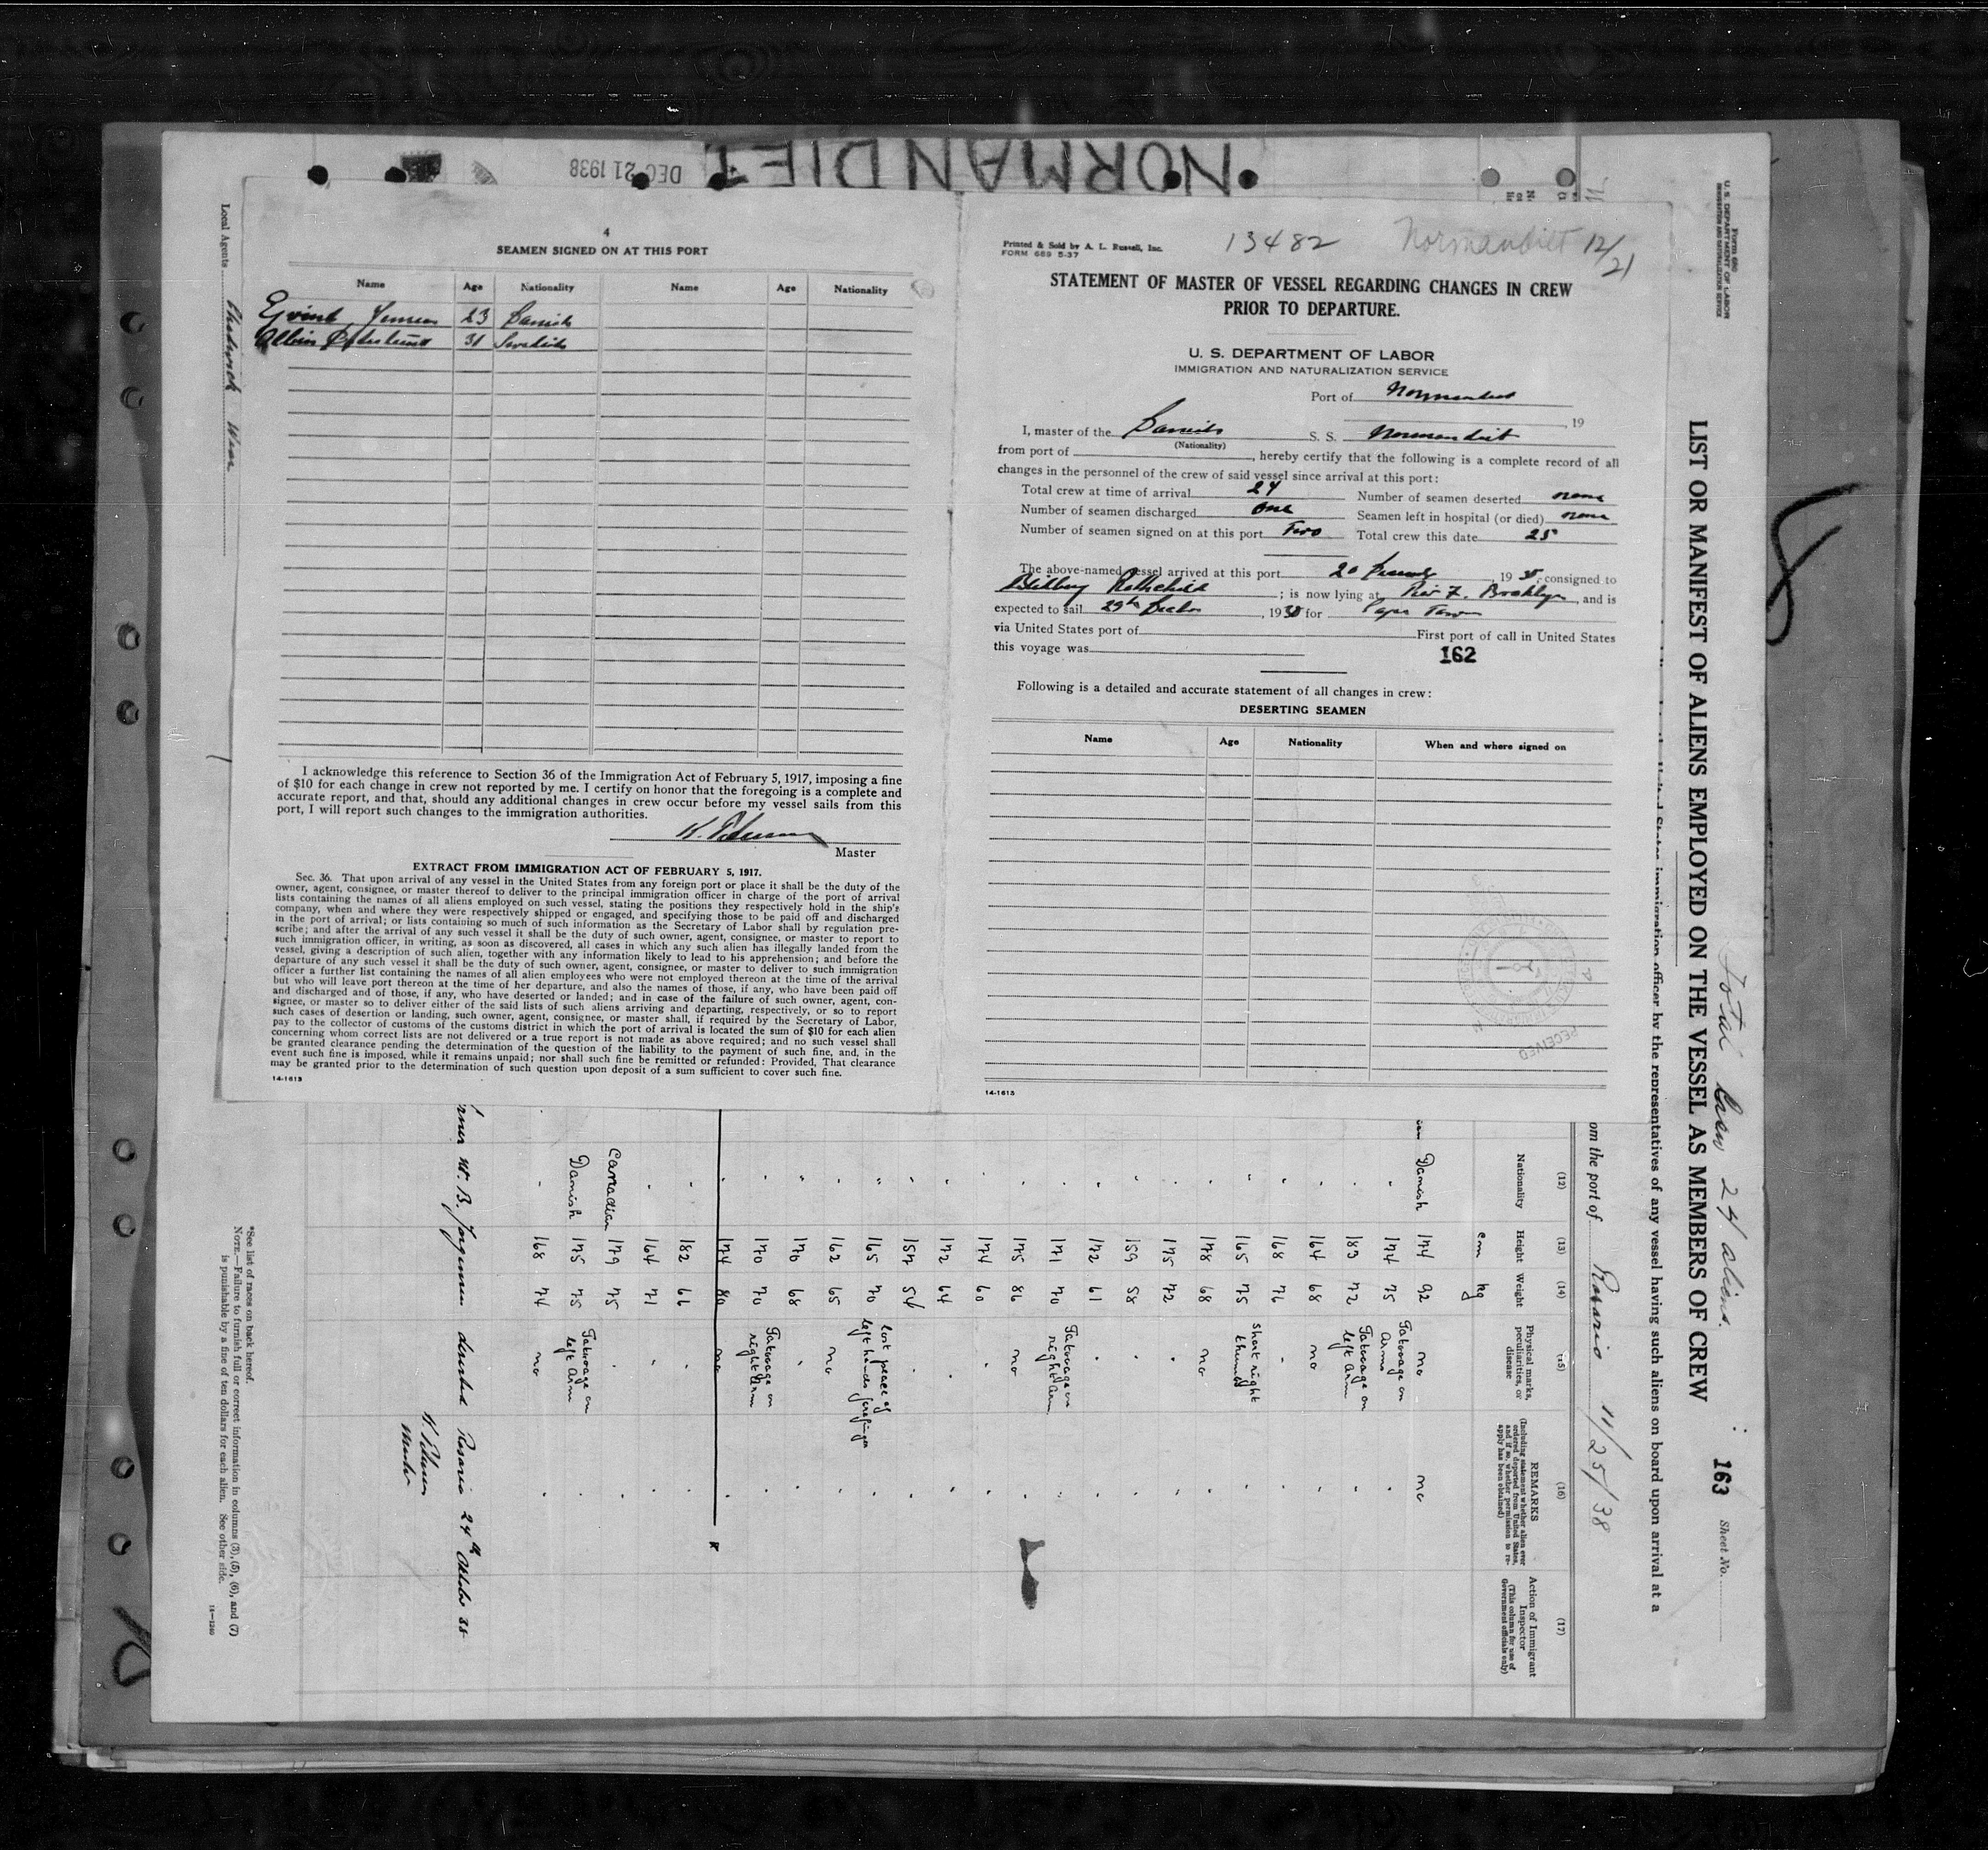 NORMANDIET
DEC 21 1938
4
SEAMEN SIGNED ON AT THIS PORT
Name Age Nationality Name Age Nationality
Ejvind Jensen 23 Danish
Albin 31 Swedish
I acknowledge this reference to Section 36 of the Immigration Act of February 5, 1917, imposing a fine
of $10 for each change in crew not reported by me. I certify on honor that the foregoing is a complete and
accurate report, and that, should any additional changes in crew occur before my vessel sails from this
port, I will report such changes to the immigration authorities.
Master
EXTRACT FROM IMMIGRATION ACT OF FEBRUARY 5, 1917.
Sec. 36. That upon arrival of any vessel in the United States from any foreign port or place it shall be the duty of the
owner, agent, consignee, or master thereof to deliver to the principal immigration officer in charge of the port of arrival
lists containing the names of all aliens employed on such vessel, stating the positions they respectively hold in the ship's
company, when and where they were respectively shipped or engaged, and specifying those to be paid off and discharged
in the port of arrival; or lists containing so much of such information as the Secretary of Labor shall by regulation pre-
scribe; and after the arrival of any such vessel it shall be the duty of such owner, agent, consignee, or master to report to
such immigration officer, in writing, as soon as discovered, all cases in which any such alien has illegally landed from the
vessel, giving a description of such alien, together with any information likely to lead to his apprehension; and before the
departure of any such vessel it shall be the duty of such owner, agent, consignee, or master to deliver to such immigration
officer a further list containing the names of all alien employees who were not employed thereon at the time of the arrival
but who will leave port thereon at the time of her departure, and also the names of those, if any, who have been paid off
and discharged and of those, if any, who have deserted or landed; and in case of the failure of such owner, agent, con-
signee, or master so to deliver either of the said lists of such aliens arriving and departing, respectively, or so to report
such cases of desertion or landing, such owner, agent, consignee, or master shall, if required by the Secretary of Labor,
pay to the collector of customs of the customs district in which the port of arrival is located the sum of $10 for each alien
concerning whom correct lists are not delivered or a true report is not made as above required; and no such vessel shall
be granted clearance pending the determination of the question of the liability to the payment of such fine, and, in the
event such fine is imposed, while it remains unpaid; nor shall such fine be remitted or refunded: Provided, That clearance
may be granted prior to the determination of such question upon deposit of a sum sufficient to cover such fine.
14-1613
Printed & Sold by A. L. Russell, Inc.
FORM 689 5-37
13482 Normandiet 12/21
STATEMENT OF MASTER OF VESSEL REGARDING CHANGES IN CREW
PRIOR TO DEPARTURE.
U. S. DEPARTMENT OF LABOR
IMMIGRATION AND NATURALIZATION SERVICE
Port of Normandiet
, 19
I, master of the Danish S. S. Normandiet
(Nationality)
from port of , hereby certify that the following is a complete record of all
changes in the personnel of the crew of said vessel since arrival at this port:
Total crew at time of arrival 24 Number of seamen deserted none
Number of seamen discharged one Seamen left in hospital (or died) none
Number of seamen signed on at this port Two Total crew this date 25
The above-named vessel arrived at this port 20 , 1938, consigned to
Rothchild ; is now lying at Pier 7. Brooklyn, and is
expected to sail 29th , 1938 for Cape Town
via United States port of First port of call in United States
this voyage was
162
Following is a detailed and accurate statement of all changes in crew:
DESERTING SEAMEN
Name Age Nationality When and where signed on
RECEIVED
14-1613
Local Agents
Form 680
U. S. DEPARTMENT OF LABOR
IMMIGRATION AND NATURALIZATION SERVICE
Total Crew 24 aliens.
163 Sheet No.
LIST OR MANIFEST OF ALIENS EMPLOYED ON THE VESSEL AS MEMBERS OF CREW
United States immigration officer by the representatives of any vessel having such aliens on board upon arrival at a
om the port of Rosario 11/25/38
(12) (13) (14) (15) (16) (17)
Nationality Height Weight Physical marks, peculiarities, or disease REMARKS (Including statement whether alien ever ordered deported from United States, and if so, whether permission to re-apply has been obtained) Action of Immigrant Inspector (This column for use of Government officials only)
cm kg
Danish 174 92 no no
" 174 75 Tatovage on Arms "
" 183 72 Tatovage on left Arm "
" 164 68 no "
" 168 76 " "
" 165 75 Short right thumb "
" 178 68 no "
" 175 72 " "
" 159 58 " "
" 172 61 " "
" 171 70 Tatovage on right Arm "
" 175 86 no "
" 174 60 " "
" 172 64 " "
" 157 54 " "
" 165 70 lost peace of left hands forefinger "
" 162 65 no "
" 170 68 " "
" 170 70 Tatovage on right Arm "
" 174 80 no "
" 182 66 " "
" 164 71 " "
Canadian 179 75 " "
Danish 175 75 Tatovage on left Arm "
" 168 74 no "
W. B. Jørgensen deserted Rosario 24th Oktober 38
Master
*See list of races on back hereof.
NOTE.—Failure to furnish full or correct information in columns (3), (5), (6), and (7)
is punishable by a fine of ten dollars for each alien. See other side.
8